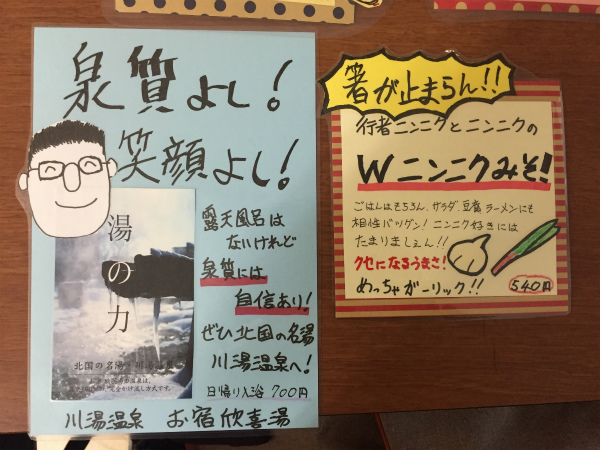 泉質よし!
笑顔よし!
湯の力
北国の名湯・川湯温泉
露天風呂は
ないけれど
泉質には
自信あり!
ぜひ北国の名湯
川湯温泉へ!
日帰り入浴 700円
川湯温泉 お宿欣喜湯
箸が止まらん!!
行者ニンニクとニンニクの
Wニンニクみそ!
ごはんはもちろん、サラダ、豆腐、ラーメンにも
相性バツグン!ニンニク好きには
たまりましぇん!!
クセになるうまさ!
めっちゃガーリック!!
540円